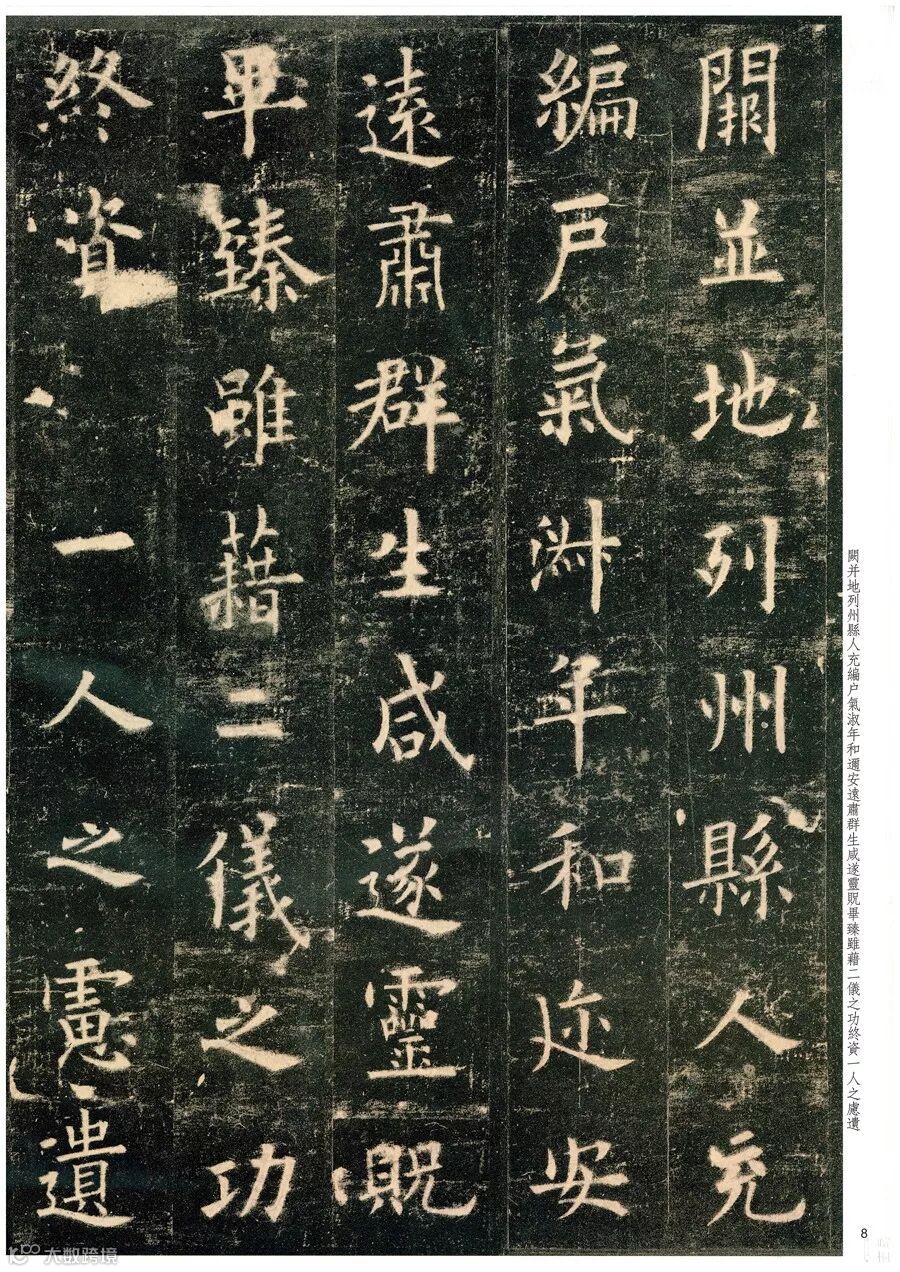 闕並地列州縣人充
編戶氣淑年和迩安
遠肅群生咸遂靈貺
畢臻雖藉二儀之功
終資一人之慮遺
闕并地列州縣人充編户氣淑年和邇安遠肅群生咸遂靈貺畢臻雖藉二儀之功終資一人之慮遺
8
大数跨境